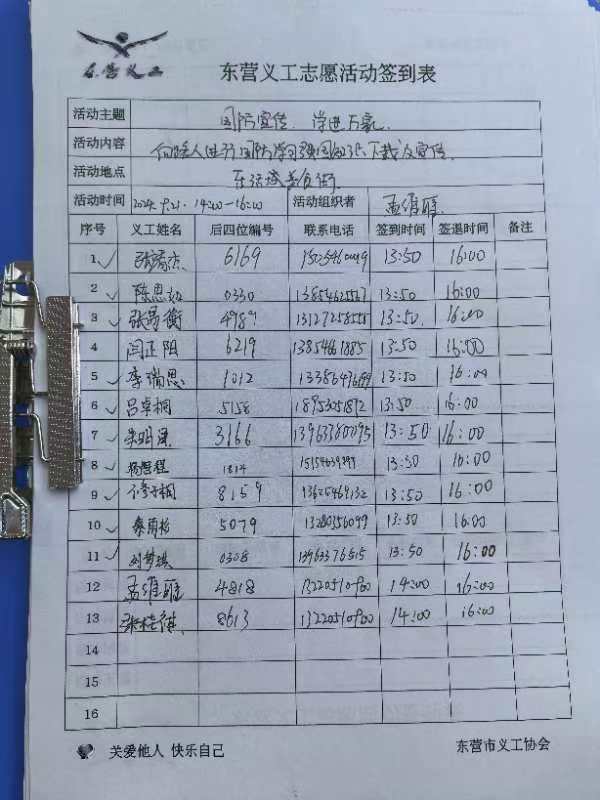 东营义工
东营义工志愿活动签到表
活动主题 国防宣传,学进万家.
活动内容 向路人进行国防学习强国知识下载及宣传.
活动地点 美食街.
活动时间 2024.9.21. 14:00-16:00 活动组织者 孟维雁
序号 义工姓名 后四位编号 联系电话 签到时间 签退时间 备注
1 6169 13:50 16:00
2 陈思 0330 13:50 16:00
3 张景衡 13:50. 16:00
4 闫正阳 6219 13854661885 13:50 16:00
5 李瑞恩 1012 13:50 16:00
6 吕卓桐 5158 18953051892 13:50 16:00
7 3166 13963380095 13:50 16:00
8 13:50 16:00
9 8159 13625469132 13:50 16:00
10 秦雨杉 5079 13280356099 13:50 16:00
11 刘梦琪 0308 13963376515 13:50 16:00
12 孟维雁 4818 13220510900 14:00 16:00
13 8613 13220510900 14:00 16:00
14
15
16
关爱他人 快乐自己 东营市义工协会